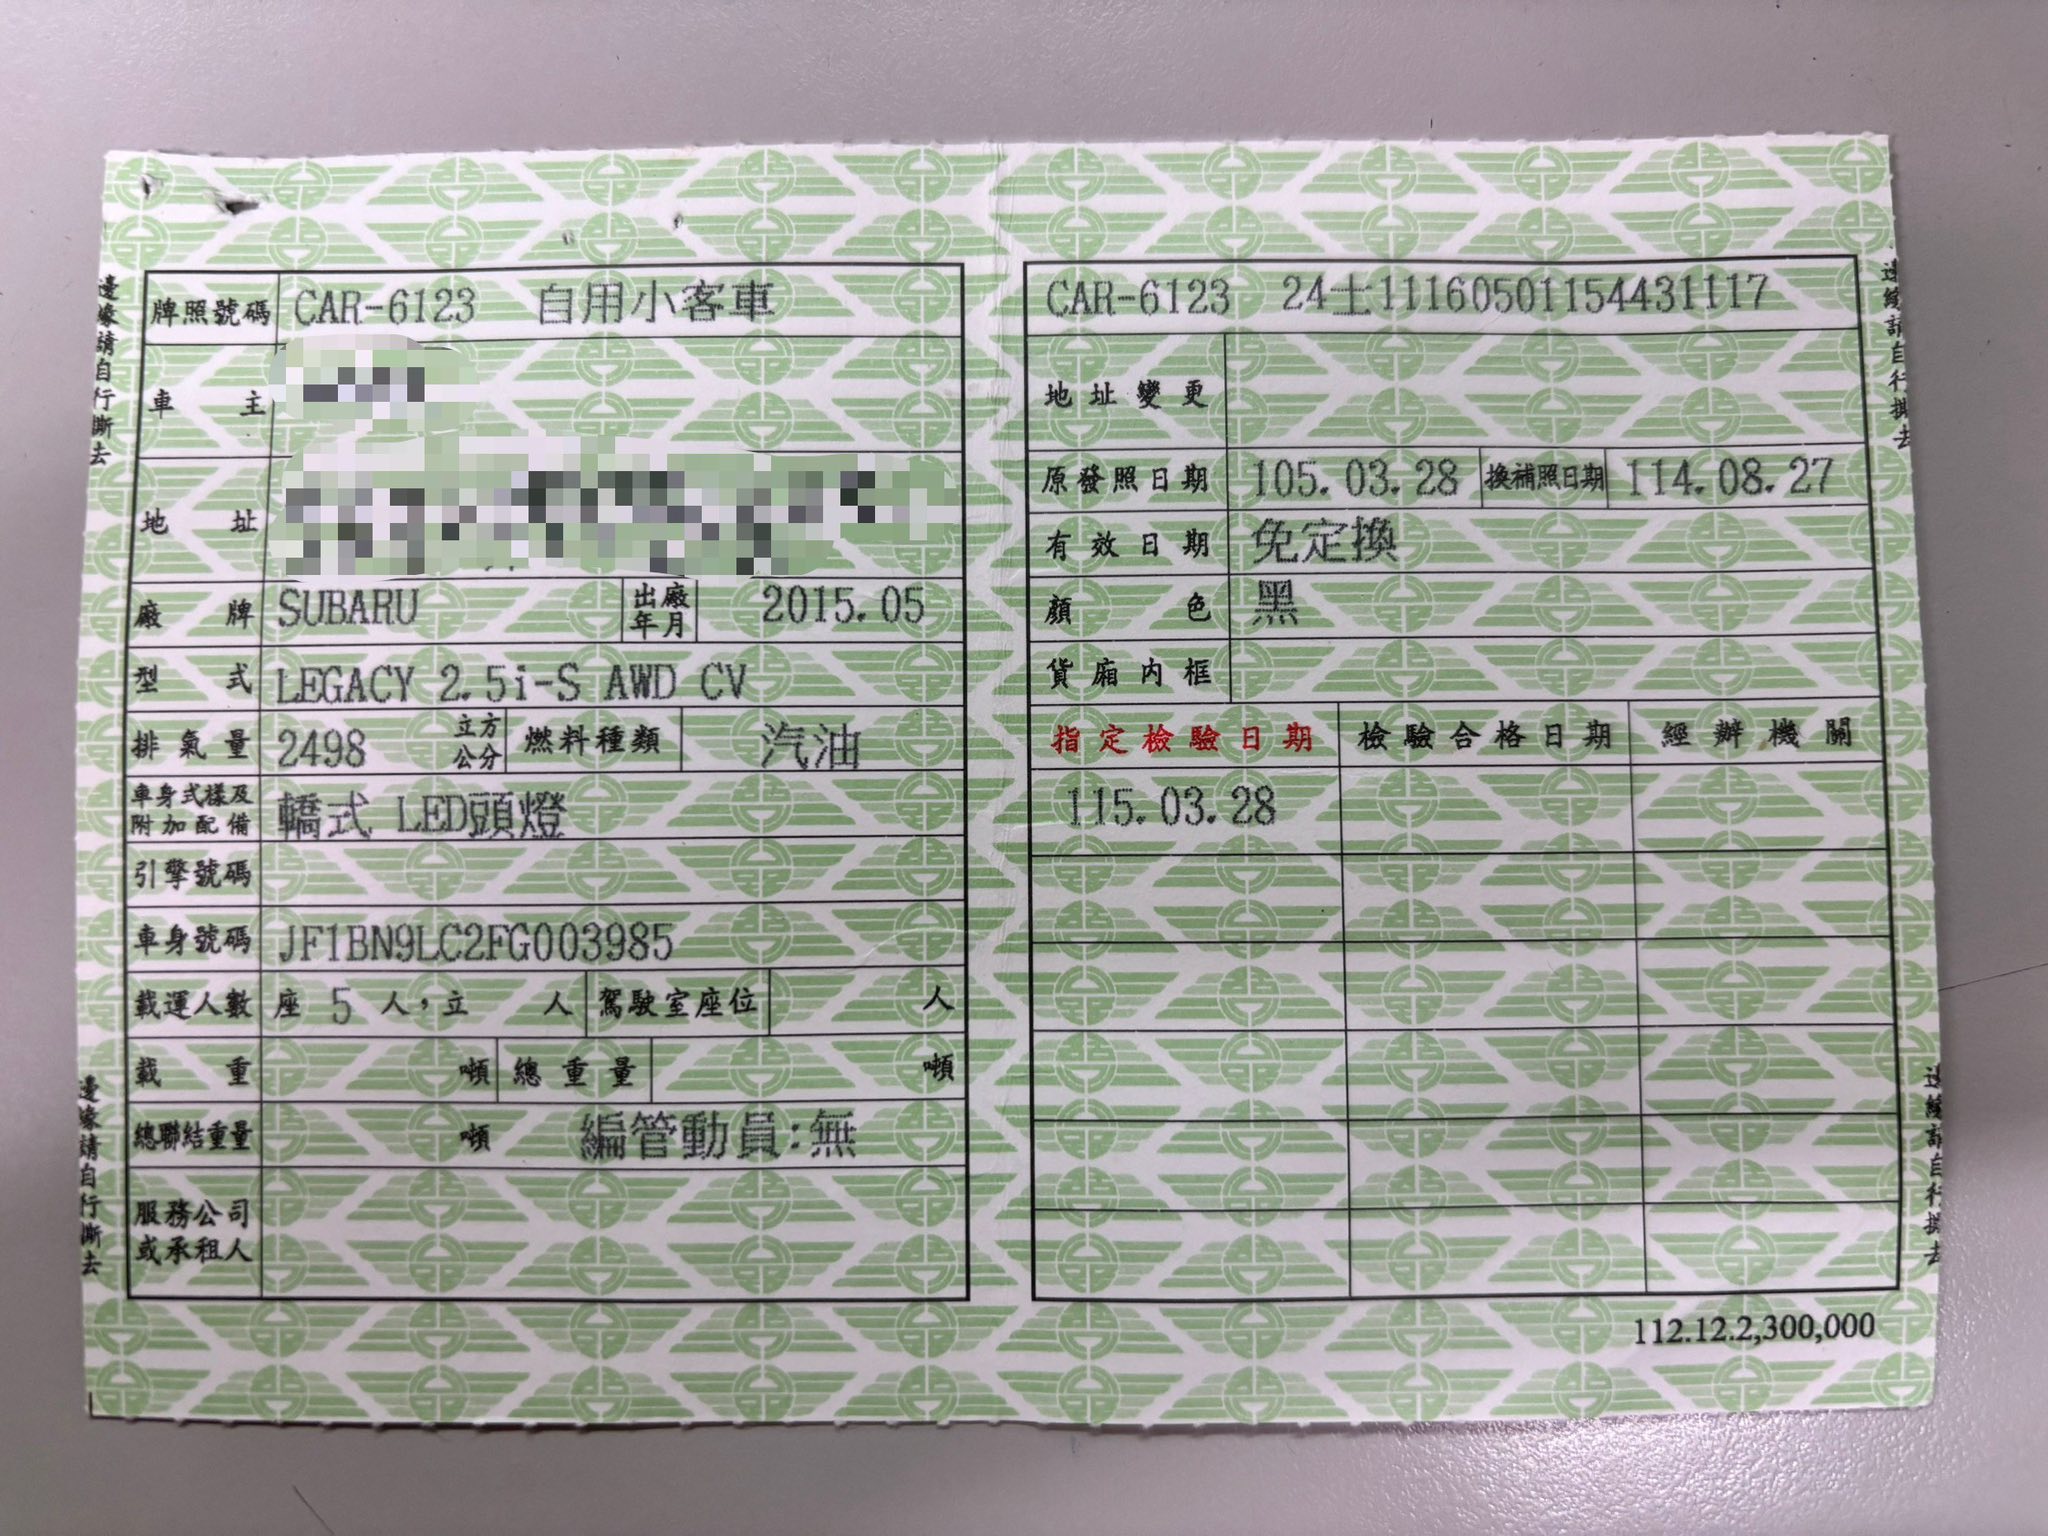 牌照號碼 CAR-6123 自用小客車
車主
地址
廠牌 SUBARU 出廠年月 2015.05
型式 LEGACY 2.5i-S AWD CV
排氣量 2498 立方公分 燃料種類 汽油
車身式樣及附加配備 轎式 LED頭燈
引擎號碼
車身號碼 JF1BN9LC2FG003985
載運人數 座 5 人，立 人 駕駛室座位 人
載重 噸 總重量 噸
總聯結重量 噸 編管動員:無
服務公司或承租人
CAR-6123 24土11160501154431117
地址變更
原發照日期 105.03.28 換補照日期 114.08.27
有效日期 免定換
顏色 黑
貨廂內框
指定檢驗日期 檢驗合格日期 經辦機關
115.03.28
112.12.2,300,000
邊緣請自行撕去
邊緣請自行撕去
邊緣請自行撕去
邊緣請自行撕去